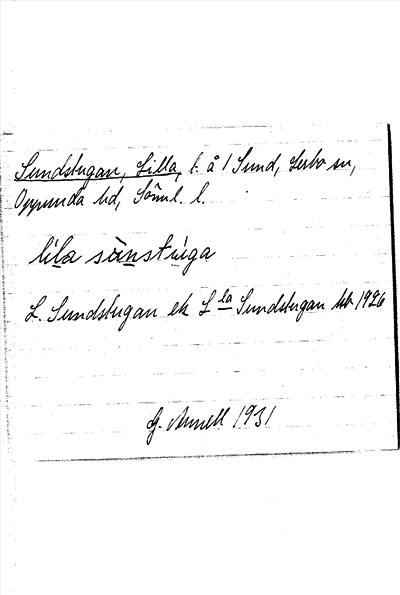 Sundstugan, Lilla, l. å 1 Sund, Lerbo sn,
Oppunda hd, Söml. l.
lila sùnstùga
L. Sundstugan ek L la Sundstugan hb 1926
G. Annell 1931